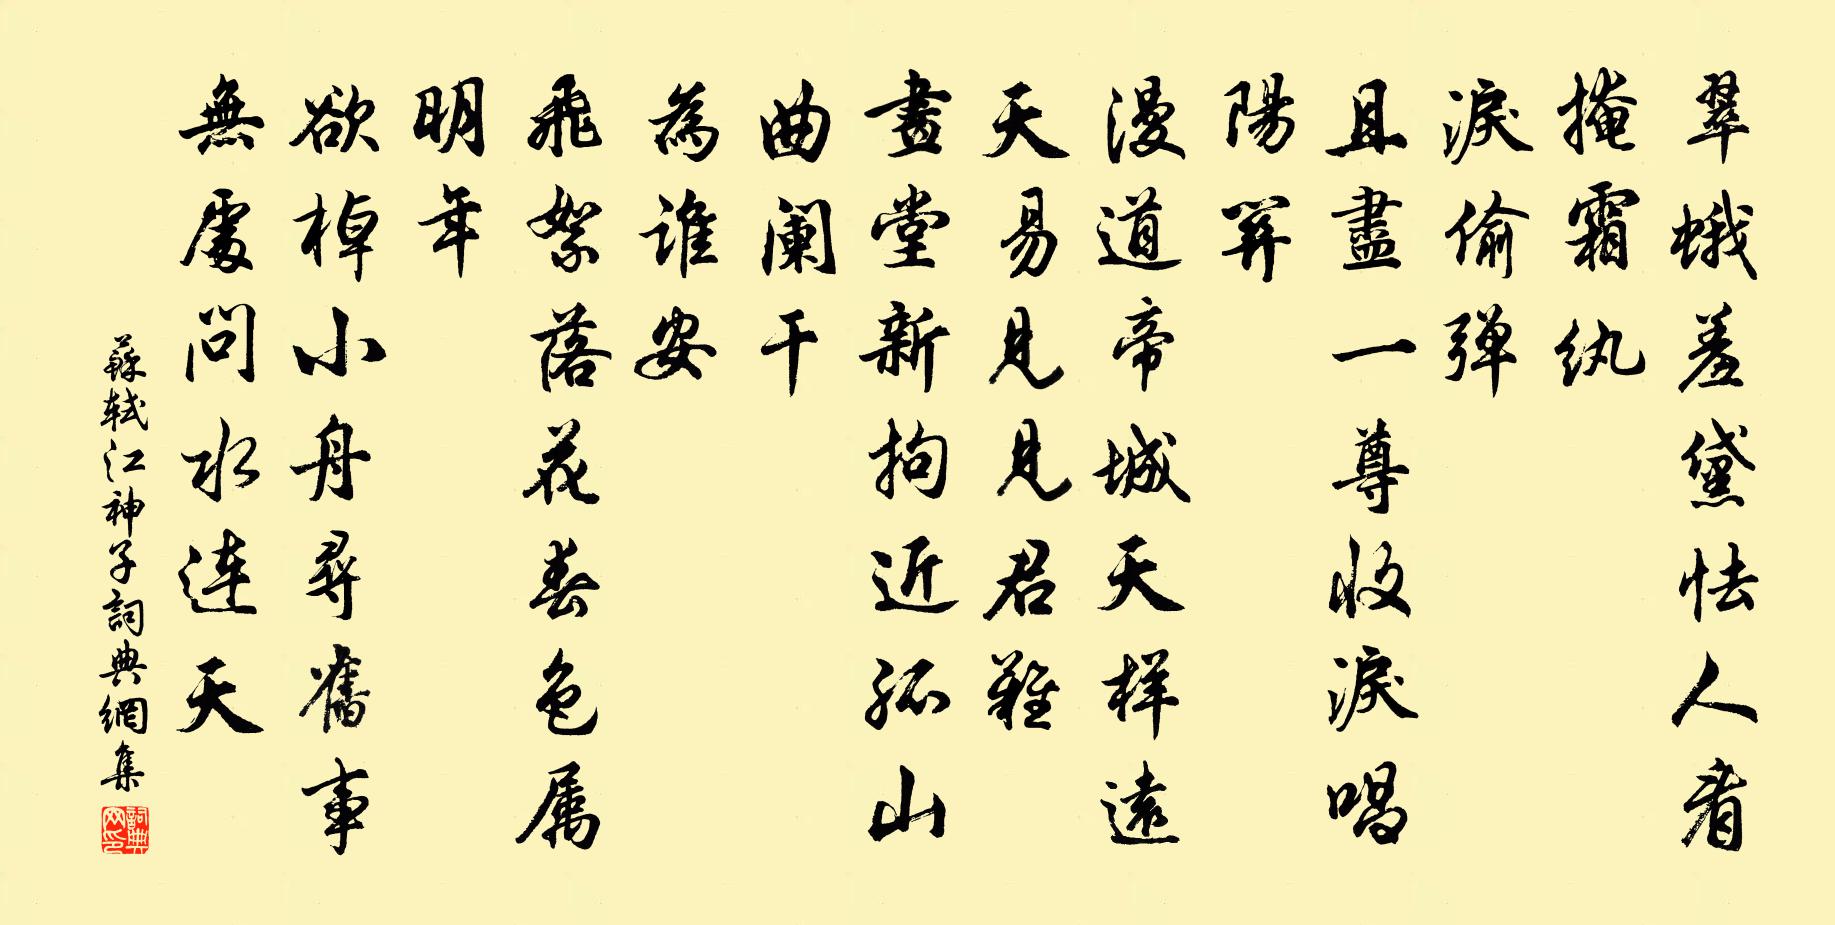 翠蛾羞黛怯人看
掩霜纨
淚偷弹
且盡一尊收淚唱
陽關
漫道帝城天样遠
天易見見君難
畫堂新拘近孤山
曲阑干
為誰安
飛絮落花春色属
明年
欲棹小舟尋舊事
無處問水連天
蘇軾江神子詞典網集
詞典网印